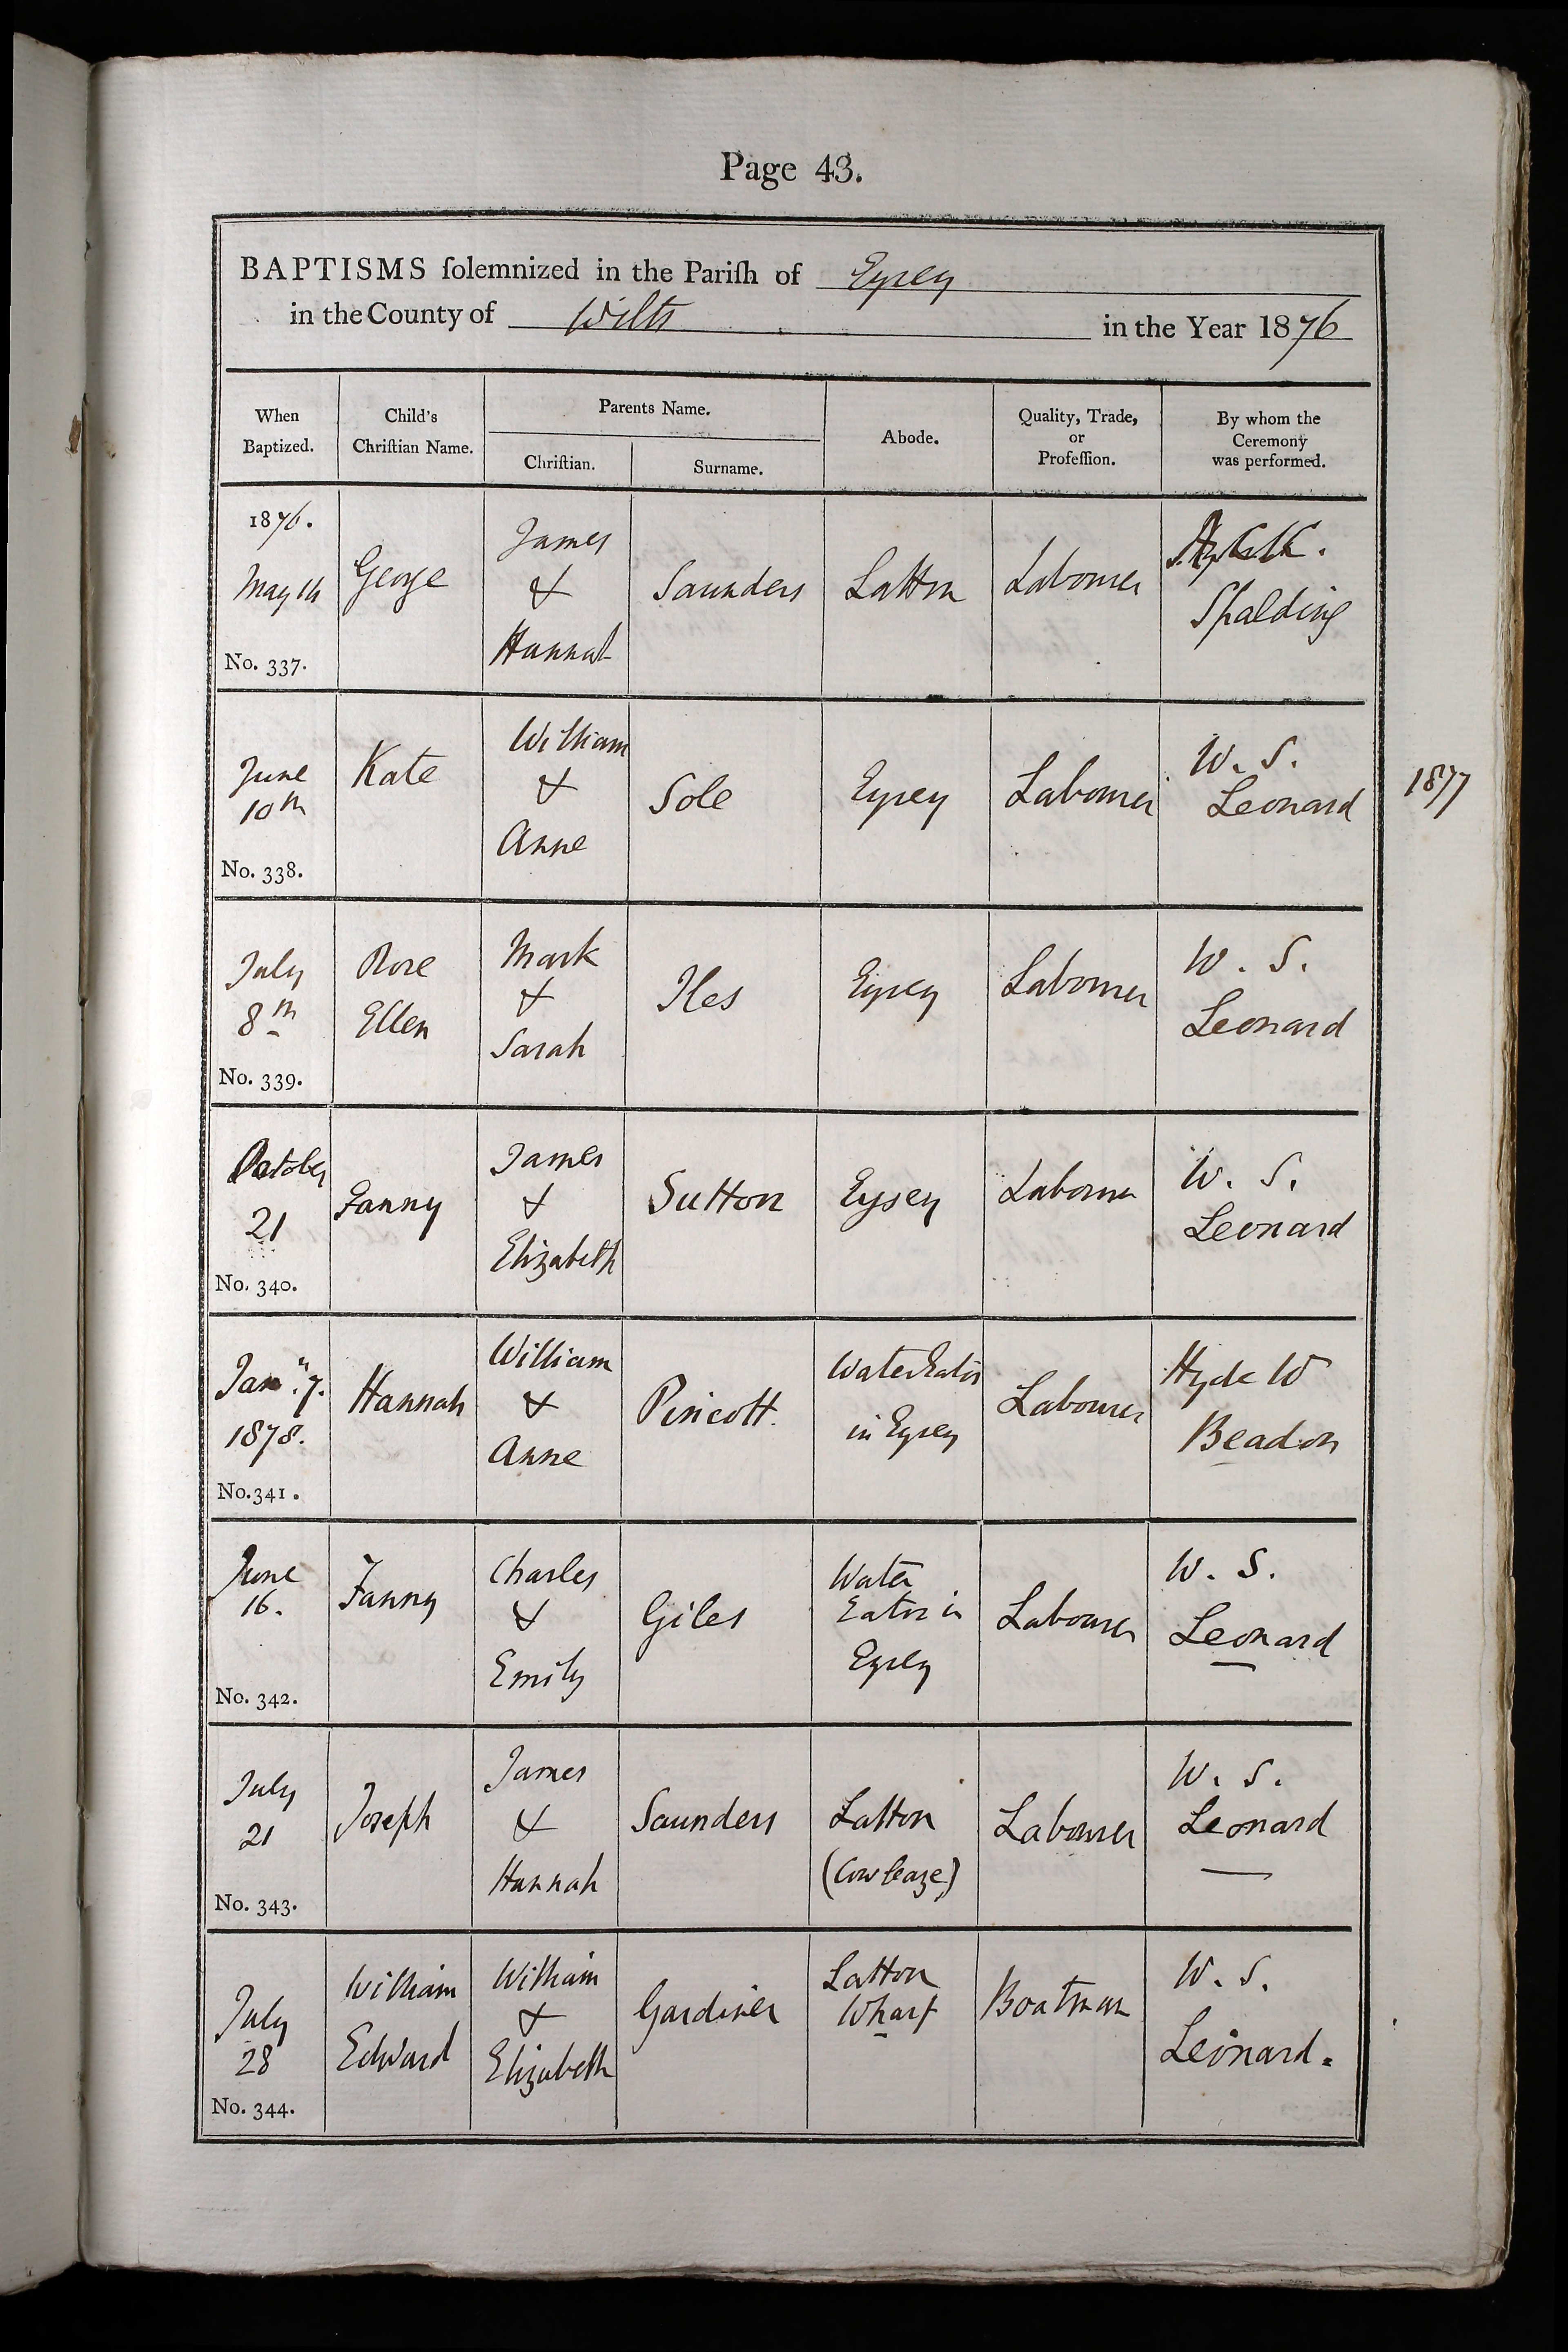 Page 43.
BAPTISMS ſolemnized in the Pariſh of Eysey
in the County of Wilts in the Year 1876
When
Baptized.
Child's
Chriſtian Name.
Parents Name.
Chriſtian.
Surname.
Abode.
Quality, Trade,
or
Profeſſion.
By whom the
Ceremony
was performed.
1876.
May 14
No. 337.
George
James
&
Hannah
Saunders
Latton
Labourer
Spalding
June
10th
No. 338.
Kate
William
&
Anne
Sole
Eysey
Labourer
W. S.
Leonard
1877
July
8th
No. 339.
Rose
Ellen
Mark
&
Sarah
Iles
Eysey
Labourer
W. S.
Leonard
October
21
No. 340.
Fanny
James
&
Elizabeth
Sutton
Eysey
Labourer
W. S.
Leonard
Jany. 7.
1878.
No. 341.
Hannah
William
&
Anne
Pinicott.
Water Eaton
in Eysey
Labourer
Hyde W
Beadon
June
16.
No. 342.
Fanny
Charles
&
Emily
Giles
Water
Eaton in
Eysey
Labourer
W. S.
Leonard
July
21
No. 343.
Joseph
James
&
Hannah
Saunders
Latton
(Cowleaze)
Labourer
W. S.
Leonard
July
28
No. 344.
William
Edward
William
&
Elizabeth
Gardiner
Latton
Wharf
Boatman
W. S.
Leonard.